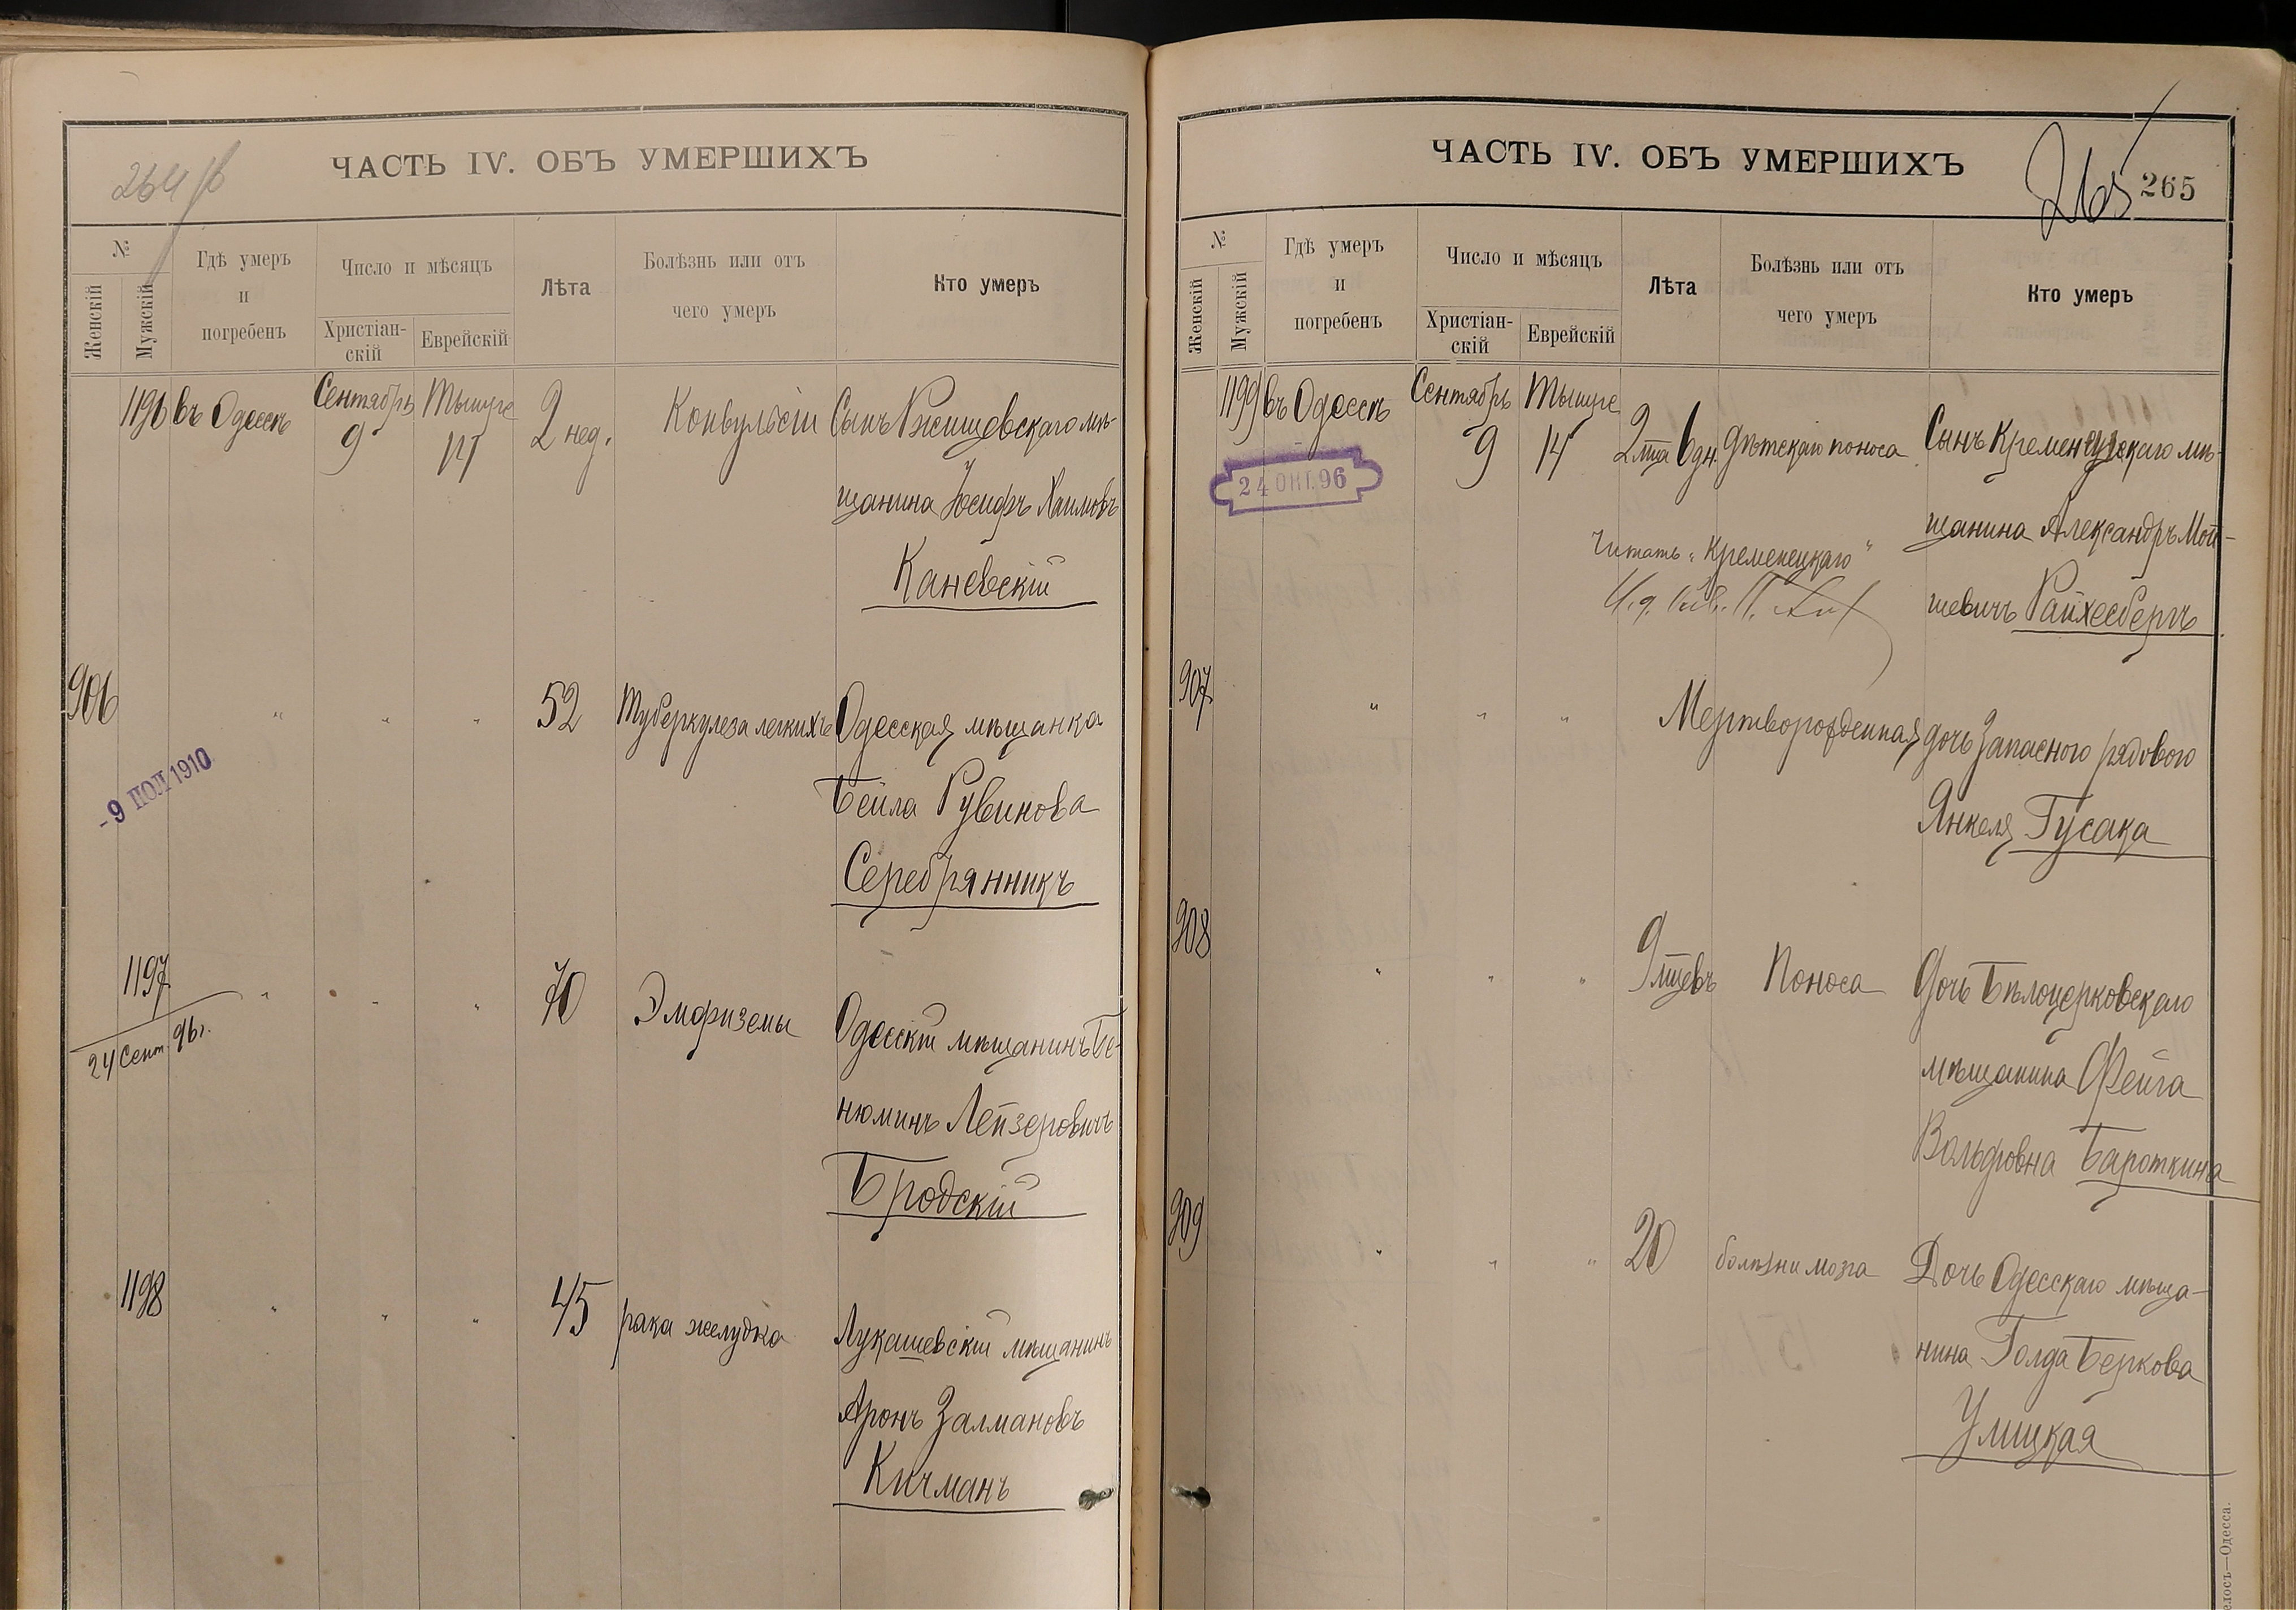 264 об
ЧАСТЬ IV. ОБЪ УМЕРШИХЪ
№
Женскій
Мужскій
Гдѣ умеръ
и
погребенъ
Число и мѣсяцъ
Христіан-
скій
Еврейскій
Лѣта
Болѣзнь или отъ
чего умеръ
Кто умеръ
1196 въ Одессѣ Сентябрь 9 Тышре 14 2 нед. Конвульсіи Сынъ Ржищевскаго мѣ-
щанина Іосифъ Хаимовъ
Каневскій
906 " " " 52 Туберкулеза легкихъ Одесская мѣщанка
- 9 ІЮЛ 1910
Бейла Рувинова
Серебрянникъ
1197 " " " 70 Эмфиземы Одесскій мѣщанинъ Бе-
24 Сент. 96 г.
нюминъ Лейзеровичъ
Бродскій
1198 " " " 45 рака желудка Лукашевскій мѣщанинъ
Аронъ Залмановъ
Кичманъ
ЧАСТЬ IV. ОБЪ УМЕРШИХЪ
265
265
№
Женскій
Мужскій
Гдѣ умеръ
и
погребенъ
Число и мѣсяцъ
Христіан-
скій
Еврейскій
Лѣта
Болѣзнь или отъ
чего умеръ
Кто умеръ
1199 въ Одессѣ Сентябрь 9 Тышре 14 2 мца 6 дн. дѣтскаго поноса Сынъ Кременчугскаго мѣ-
24 ОКТ. 96
щанина Александръ Мой-
Читать "Кременецкаго"
шевичъ Райхесбергъ
907 " " " Мертворожденная дочь Запасного рядового
Янкеля Гусака
908 " " " 9 мцевъ Поноса Дочь Бѣлоцерковскаго
мѣщанина Фейга
Вольфовна Бароткина
909 " " " 20 болѣзни мозга Дочь Одесскаго мѣща-
нина Голда Беркова
Умицкая
лосъ—Одесса.